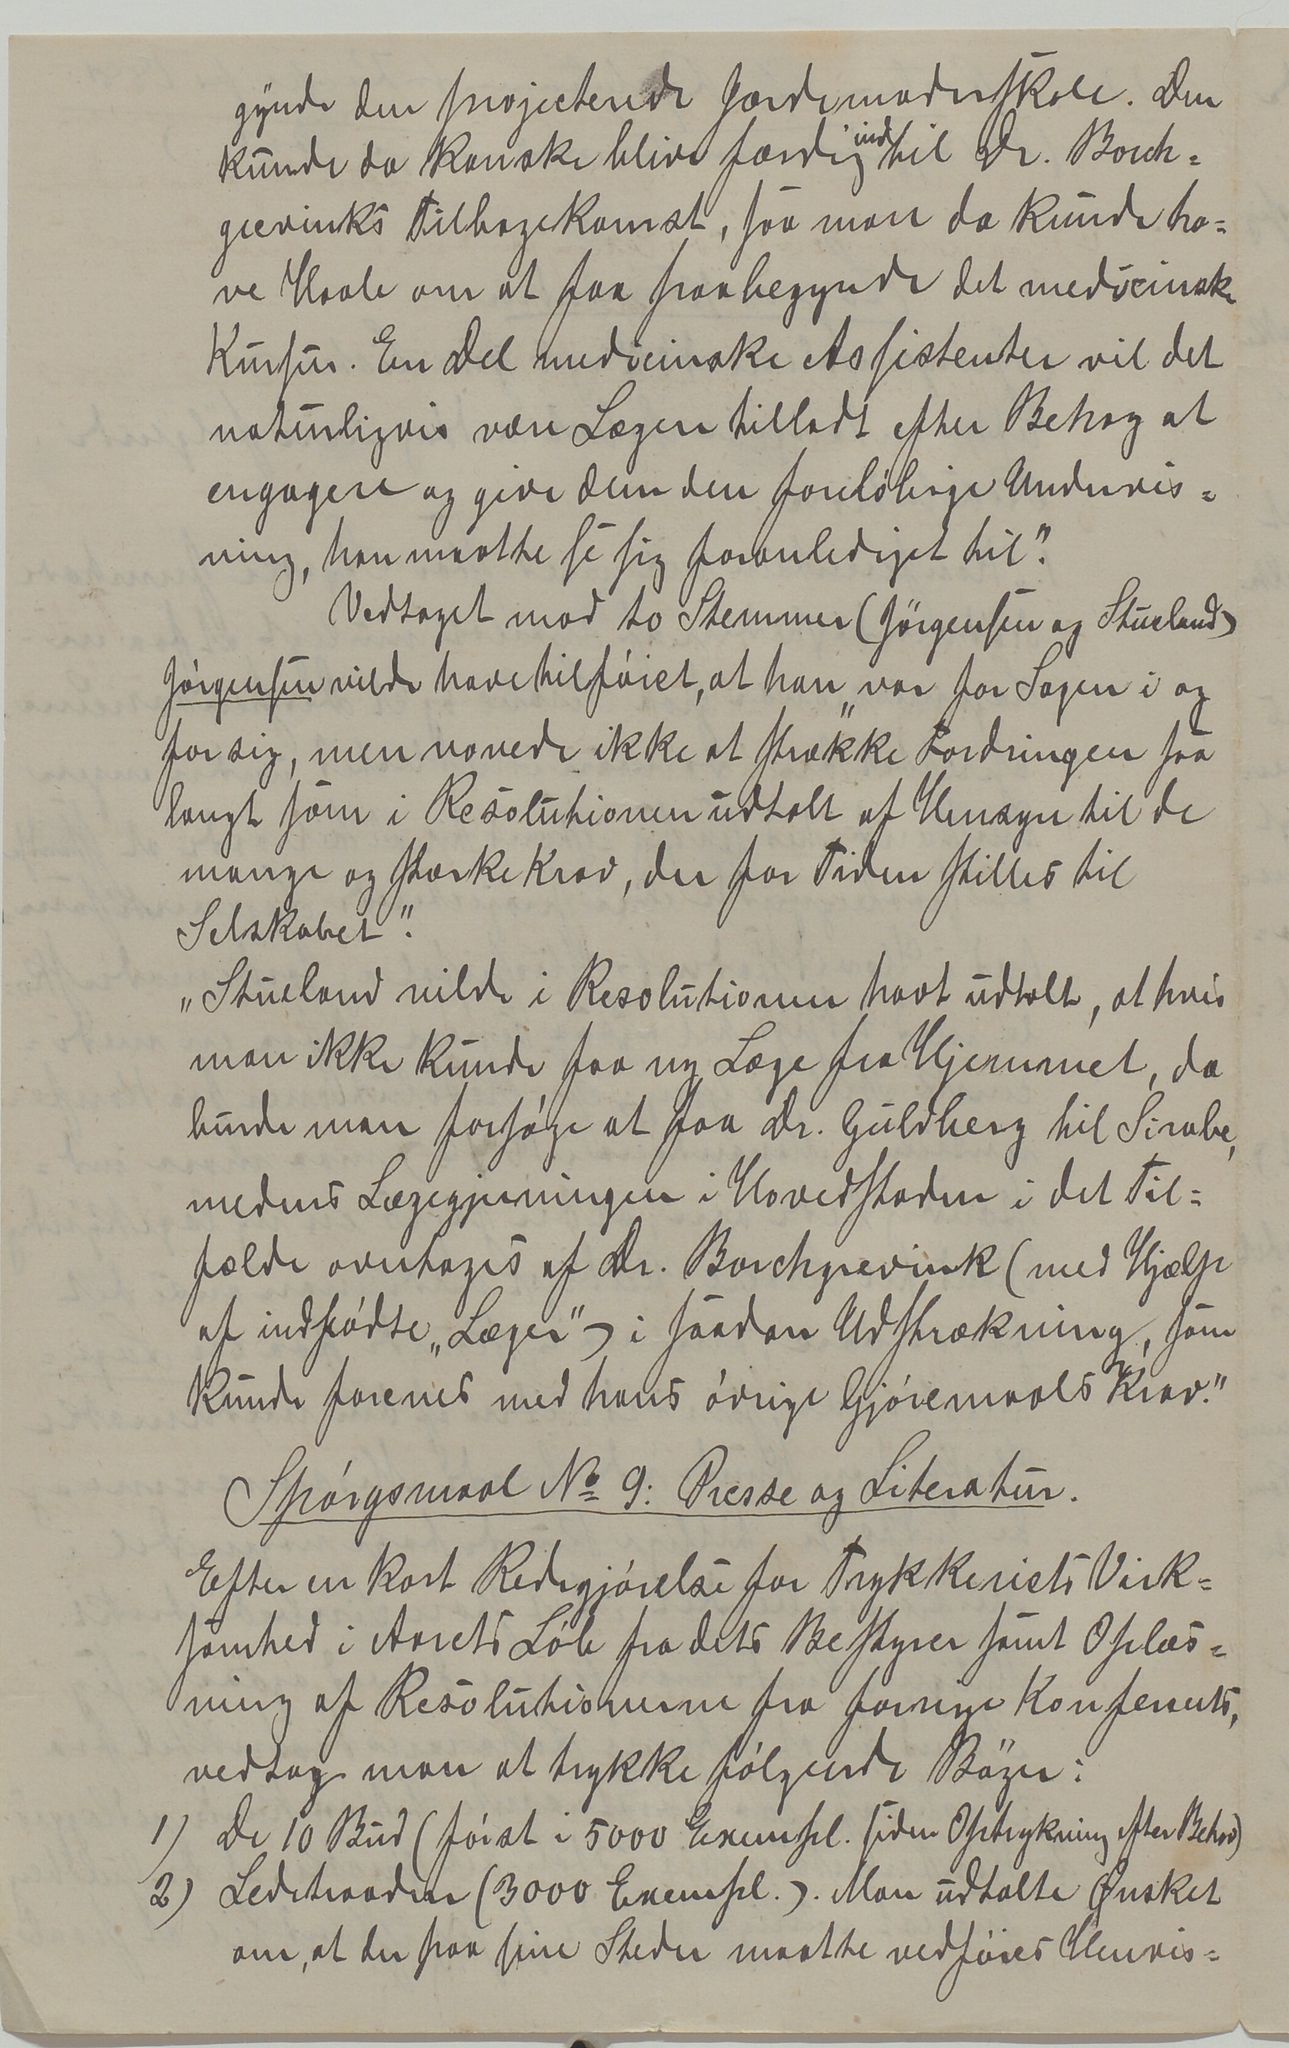 gynde den projecterede Jordemoderskole. Den
kunde da kanske blive færdig indtil Dr. Borch-
grevinks Tilbagekomst, saa man da kunde ha-
ve Haab om at faa paabegynde det medicinske
Kursus. En Del medicinske Assistenter vil det
naturligvis være Lægen tilladt efter Behag at
engagere og give dem den foreløbige Undervis-
ning, han maatte se sig foranlediget til".
Vedtaget mod to Stemmer (Jørgensen og Stueland)
Jørgensen vilde have tilføiet, at han „var for Sagen i og
for sig, men vovede ikke at strække Fordringen saa
langt som i Resolutionen udtalt af Hensyn til de
mange og stærke Krav, der for Tiden stilles til
Selskabet".
„Stueland vilde i Resolutionen havt udtalt, at hvis
man ikke kunde faa ny Læge fra Hjemmet, da
burde man forsøge at faa Dr. Guldberg til Sirabe,
medens Lægegjerningen i Hovedstaden i det Til-
fælde overtages af Dr. Borchgrevink (med Hjælp
af indfødte „Læger") i saadan Udstrækning, som
kunde forenes med hans øvrige Gjøremaals Krav."
Spørgsmaal No 9: Presse og Literatur.
Efter en kort Redegjørelse for Trykkeriets Virk-
somhed i Aarets Løb fra dets Bestyrer samt Oplæs-
ning af Resolutionerne fra forrige Konferents,
vedtog man at trykke følgende Bøger:
1) De 10 Bud (først i 5000 Exempl. siden Optrykning efter Behov)
2) Ledetraaden (3000 Exempl.). Man udtalte Ønsket
om, at der paa sine Steder maatte vedføies Henvis-